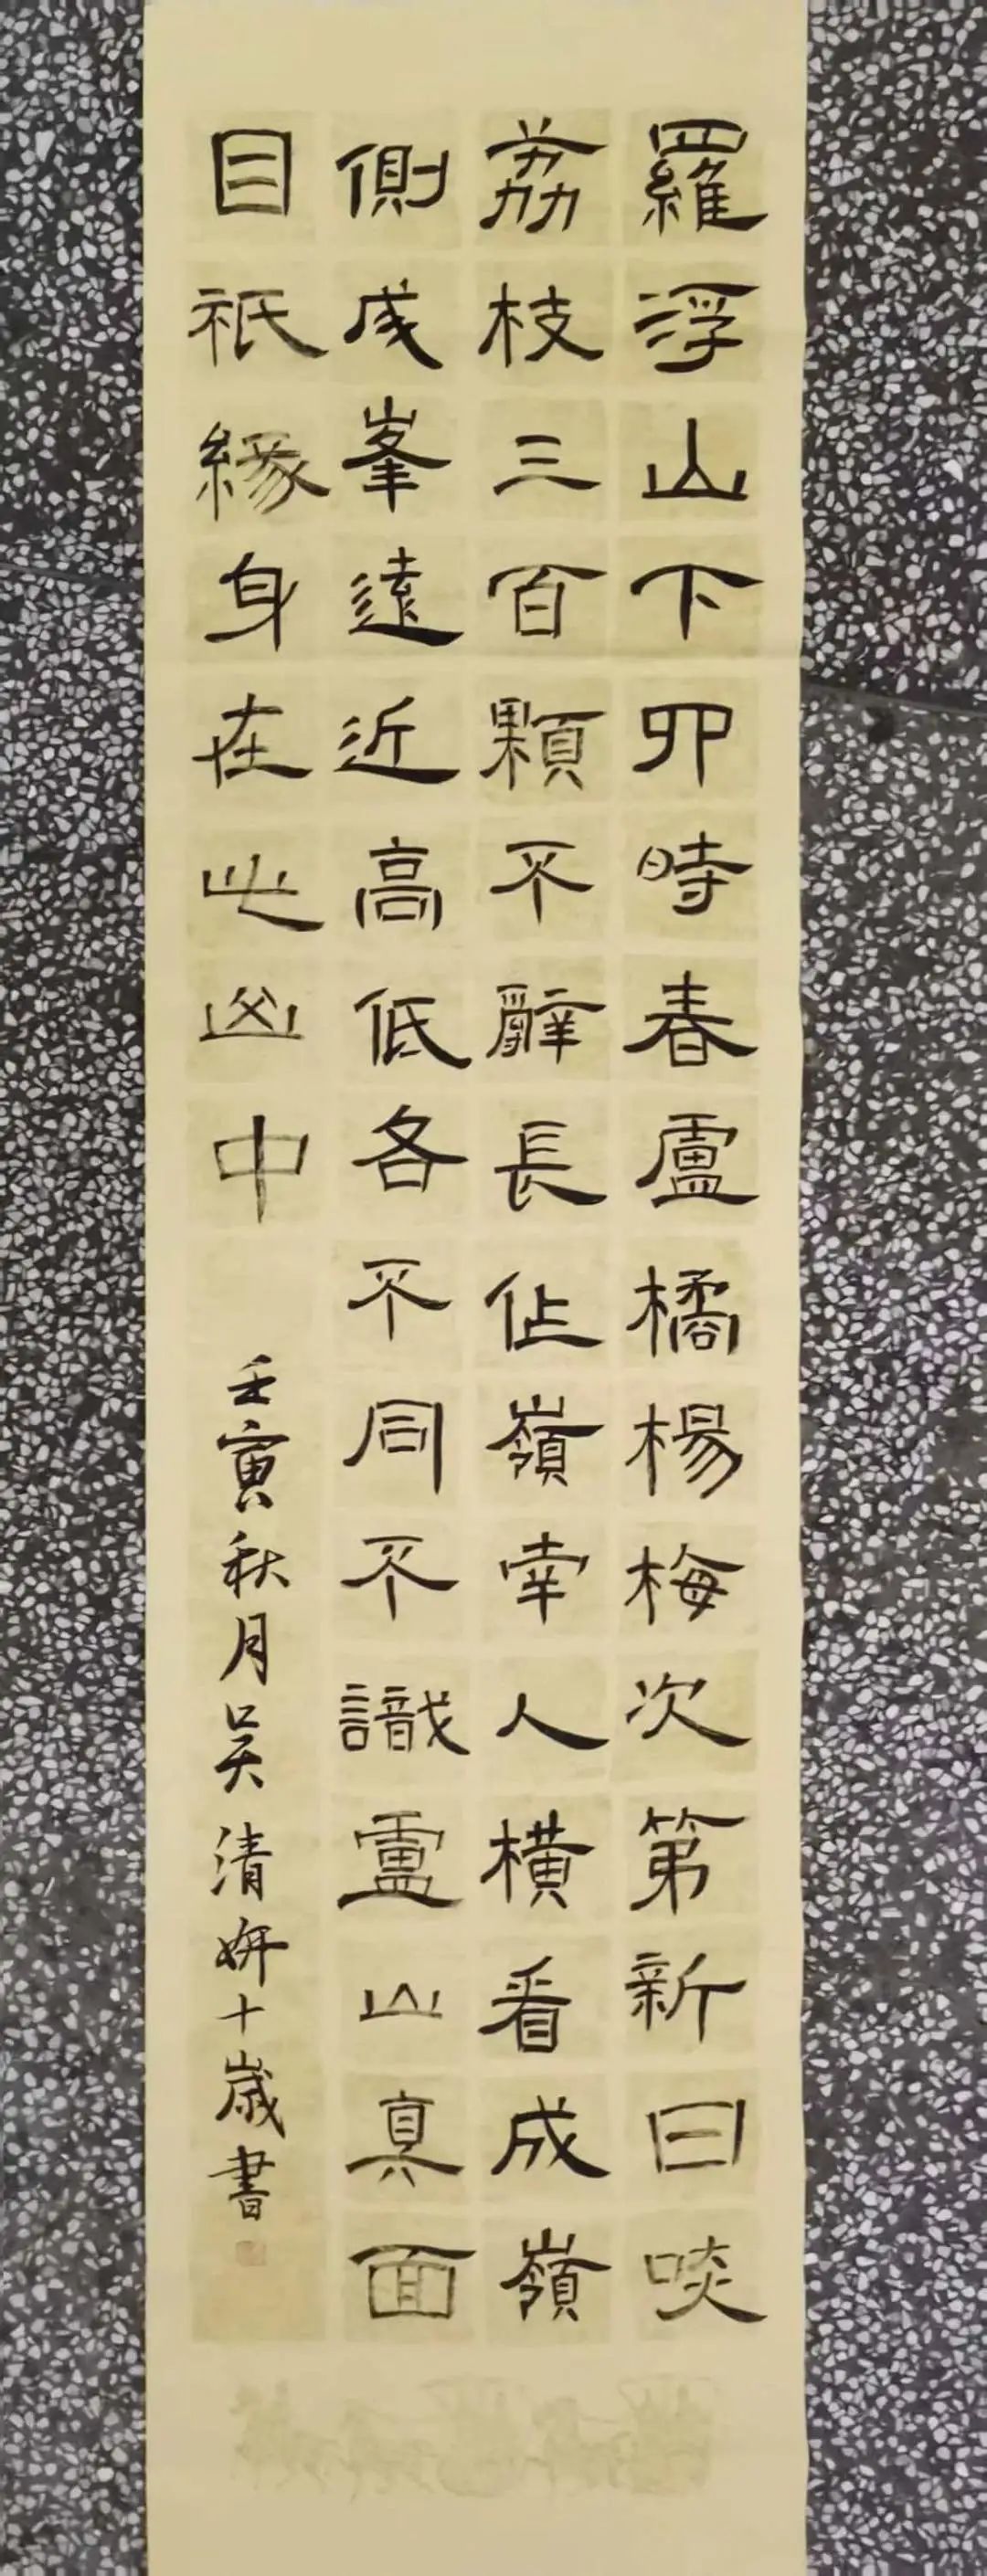 羅浮山下四時春盧橘楊梅次第新日啖
荔枝三百顆不辭長作嶺南人橫看成嶺
側成峯遠近高低各不同不識盧山真面
目祇緣身在此山中 壬寅秋月吳清妍十歲書